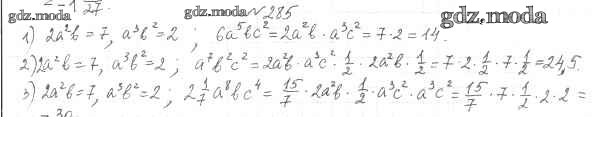 gdz.moda gdz.moda №285 gdz.moda
1) 2a²b = 7, a³b²=2 ; 6a⁵bc²=2a²b · a³c² = 7·2 = 14.
2) 2a²b = 7, a³b²=2 ; a⁷b²c² = 2a²b · a³c² · 1/2 · 2a²b · 1/2 = 7·2·1/2·7·1/2 = 24,5.
3) 2a²b = 7, a³b²=2 ; 2 1/7 a⁸bc⁴ = 15/7 · 2a²b · 1/2 · a³c² · a³c² = 15/7 · 7 · 1/2 · 2 · 2 =